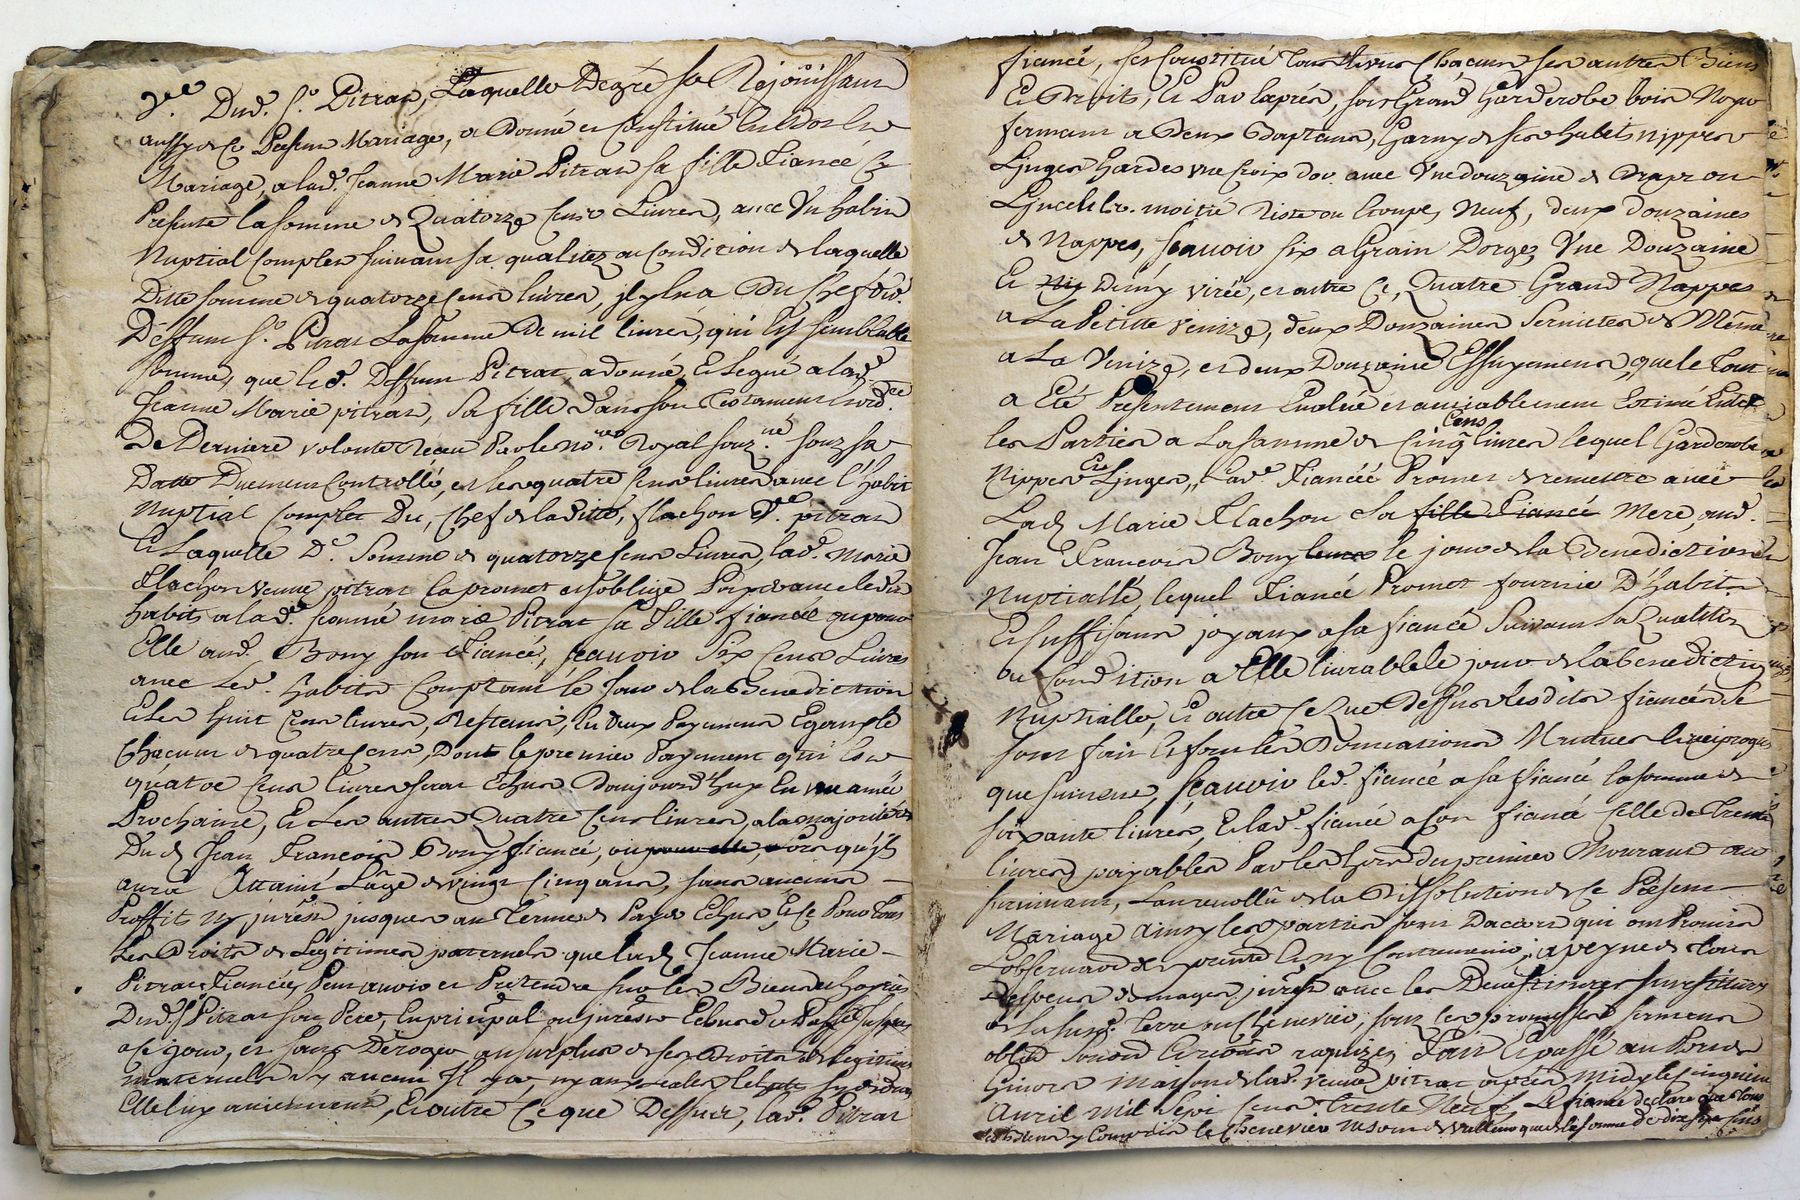 Dud. Sr. Pitrat, Laquelle Degré se Rejoüissant
aussy de ce Présent Mariage, a Donné et Constitué En Dot
Mariage, a lad. Jeanne Marie Pitrat sa fille Fiancé
Présente la somme de Quatorze Cent Livres, avec Un habit
Nuptial Complet suivant sa qualitez ou Condition de laquelle
Ditte somme de quatorze Cens livres, il y En a Du Chef dud.
Deffunt Sr. Pitrat La somme De mil livres, qui Est semblable
somme, que led. Deffunt Pitrat, a donné, Et Legué a lad.
Jeanne Marie pitrat, Sa fille dans son Testament
De Derniere volonté Receu Par le No.re Royal souz.né souz sa
Datte Duement Controllé, et les quatre Cens livres avec l'habit
Nuptial Complet Du, Chef de laditte, flachon Ve. pitrat
Et Laquelle De. Somme de quatorze Cens Livres, lad. Marie
Flachon veuve pitrat la promet et s'oblige Payer avec led.
habits a lad. Jeanne marie Pitrat sa Fille fiancée ou pour
Elle aud. Bony son Fiancé, sçauoir Six Cens Livres
avec Led. habits Comptant le Jour de la Benediction
Et Les huit Cens livres, Restant, En deux Payemens Egaux
Chacun de quatre Cens, Dont le premier Payement qui Est
quatre Cens livres sera Echus Daujourd'huy En un année
Prochaine, Et Les autres Quatre Cens livres, a la majorité
Dud Jean François Bony fiancé, ou pour elle, lors qu'il
aura Attaint L'âge de vingt Cinq ans, sans aucuns
Proffits Ny jnrêst jusques au Terme de Paye Echus, Et Ce Pour Tous
Les Droits de Legitimes paternels que lad. Jeanne Marie
Pitrat Fiancée, Peut avoir et Pretendre sur les Biens
Dud. Sr. Pitrat son Pere, En principal ou jnrêst Echus
a ce jour, et sans Deroger au surplus de ses Droits de legitime
maternels sy aucun Il y a
Elle luy aviennent, Et outre Ce que Dessus, lad. Pitrat
fiancé, ses Constitué Tous Chacuns ses autres Biens
Et Droits, Et Par Exprés, son Grand Garderobe bois Noyer
fermant a Deux Battans, Garny de ses habits nippes
Linges hardes vne Croix dor avec Vne douzaine de Draps
moitié Riste ou Etoupe, Neuf, deux douzaines
de Nappes, sçauoir six a Grain Dorge, Vne Douzaine
Et Ny Demy virée, et outre Ce, Quatre Grand Nappes
a La Petitte Venize, deux Douzaines Serviettes de Même
a La Venize, et deux Douzaine Essuyemens, que le Tout
a Eté Présentement Evalué et amiablement Estimé Entre
les Parties a La somme de Cinq Cens livres lequel Garderobe
Nippes Et Linges, Lad. Fiancéé Promet de remettre avec
Lad. Marie Flachon Sa fille Fiancé Mere, aud.
Jean François Bony le jour de la Benediction
Nuptialle, lequel Fiancé Promet fournir D'habit
Et suffisans joyaux a sa fiancé Suivant Sa Qualité
ou Condition a Elle livrable le jour de la benediction
Nuptialle, Et outre Ce Que Dessus lesdits fiancés se
sont fait Et font les Donnations Mutues Et reciproques
que suivent, sçauoir led. fiancé a sa fiancé la somme de
soixante livres, Et lad. fiancé a son fiancé Celle de Trente
livres payables Par les hoirs du premier Mourant au
survivant, L'an revollû de la Dissolution de Ce Présent
Mariage ainsy les parties sont Daccord qui ont Promis
L'observer de point Et Ny Contrevenir, a peyne de Tous
Despens domages jnrêst avec les
Terre ou Chenevier, souz les promesses sermens
oblid. Fait Et passé au
Maison de lad. veuve pitrat aprés Midy le Cinquiem
Avril Mil Sept Cens Trente Neuf Le fiancé declare que tous
ses biens y Compris le Chenevier de la somme de dix Cens